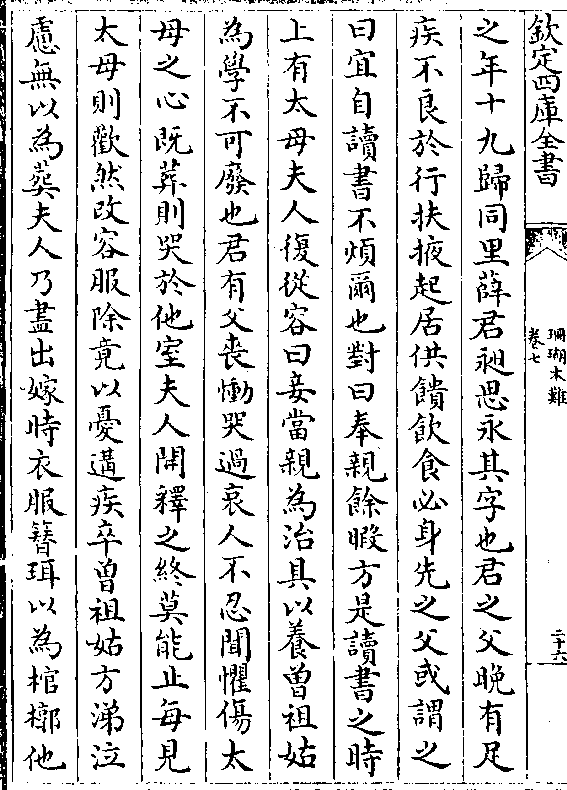 欽定四庫全書
珊瑚木難
卷七
二十六
之年十九歸同里薛君昶思永其字也君之父晩有足
疾不良於行扶掖起居供饋飲食必身先之父或謂之
曰宜自讀書不煩爾也對曰奉親餘暇方是讀書之時
上有太母夫人復從容曰妾當親為治具以養曽祖姑
為學不可廢也君有父喪慟哭過哀人不忍聞懼傷太
母之心既葬則哭於他室夫人開釋之終莫能止每見
太母則歡然改容服除竟以憂遘疾卒曽祖姑方涕泣
慮無以為葬夫人乃盡出嫁時衣服簪珥以為棺槨他